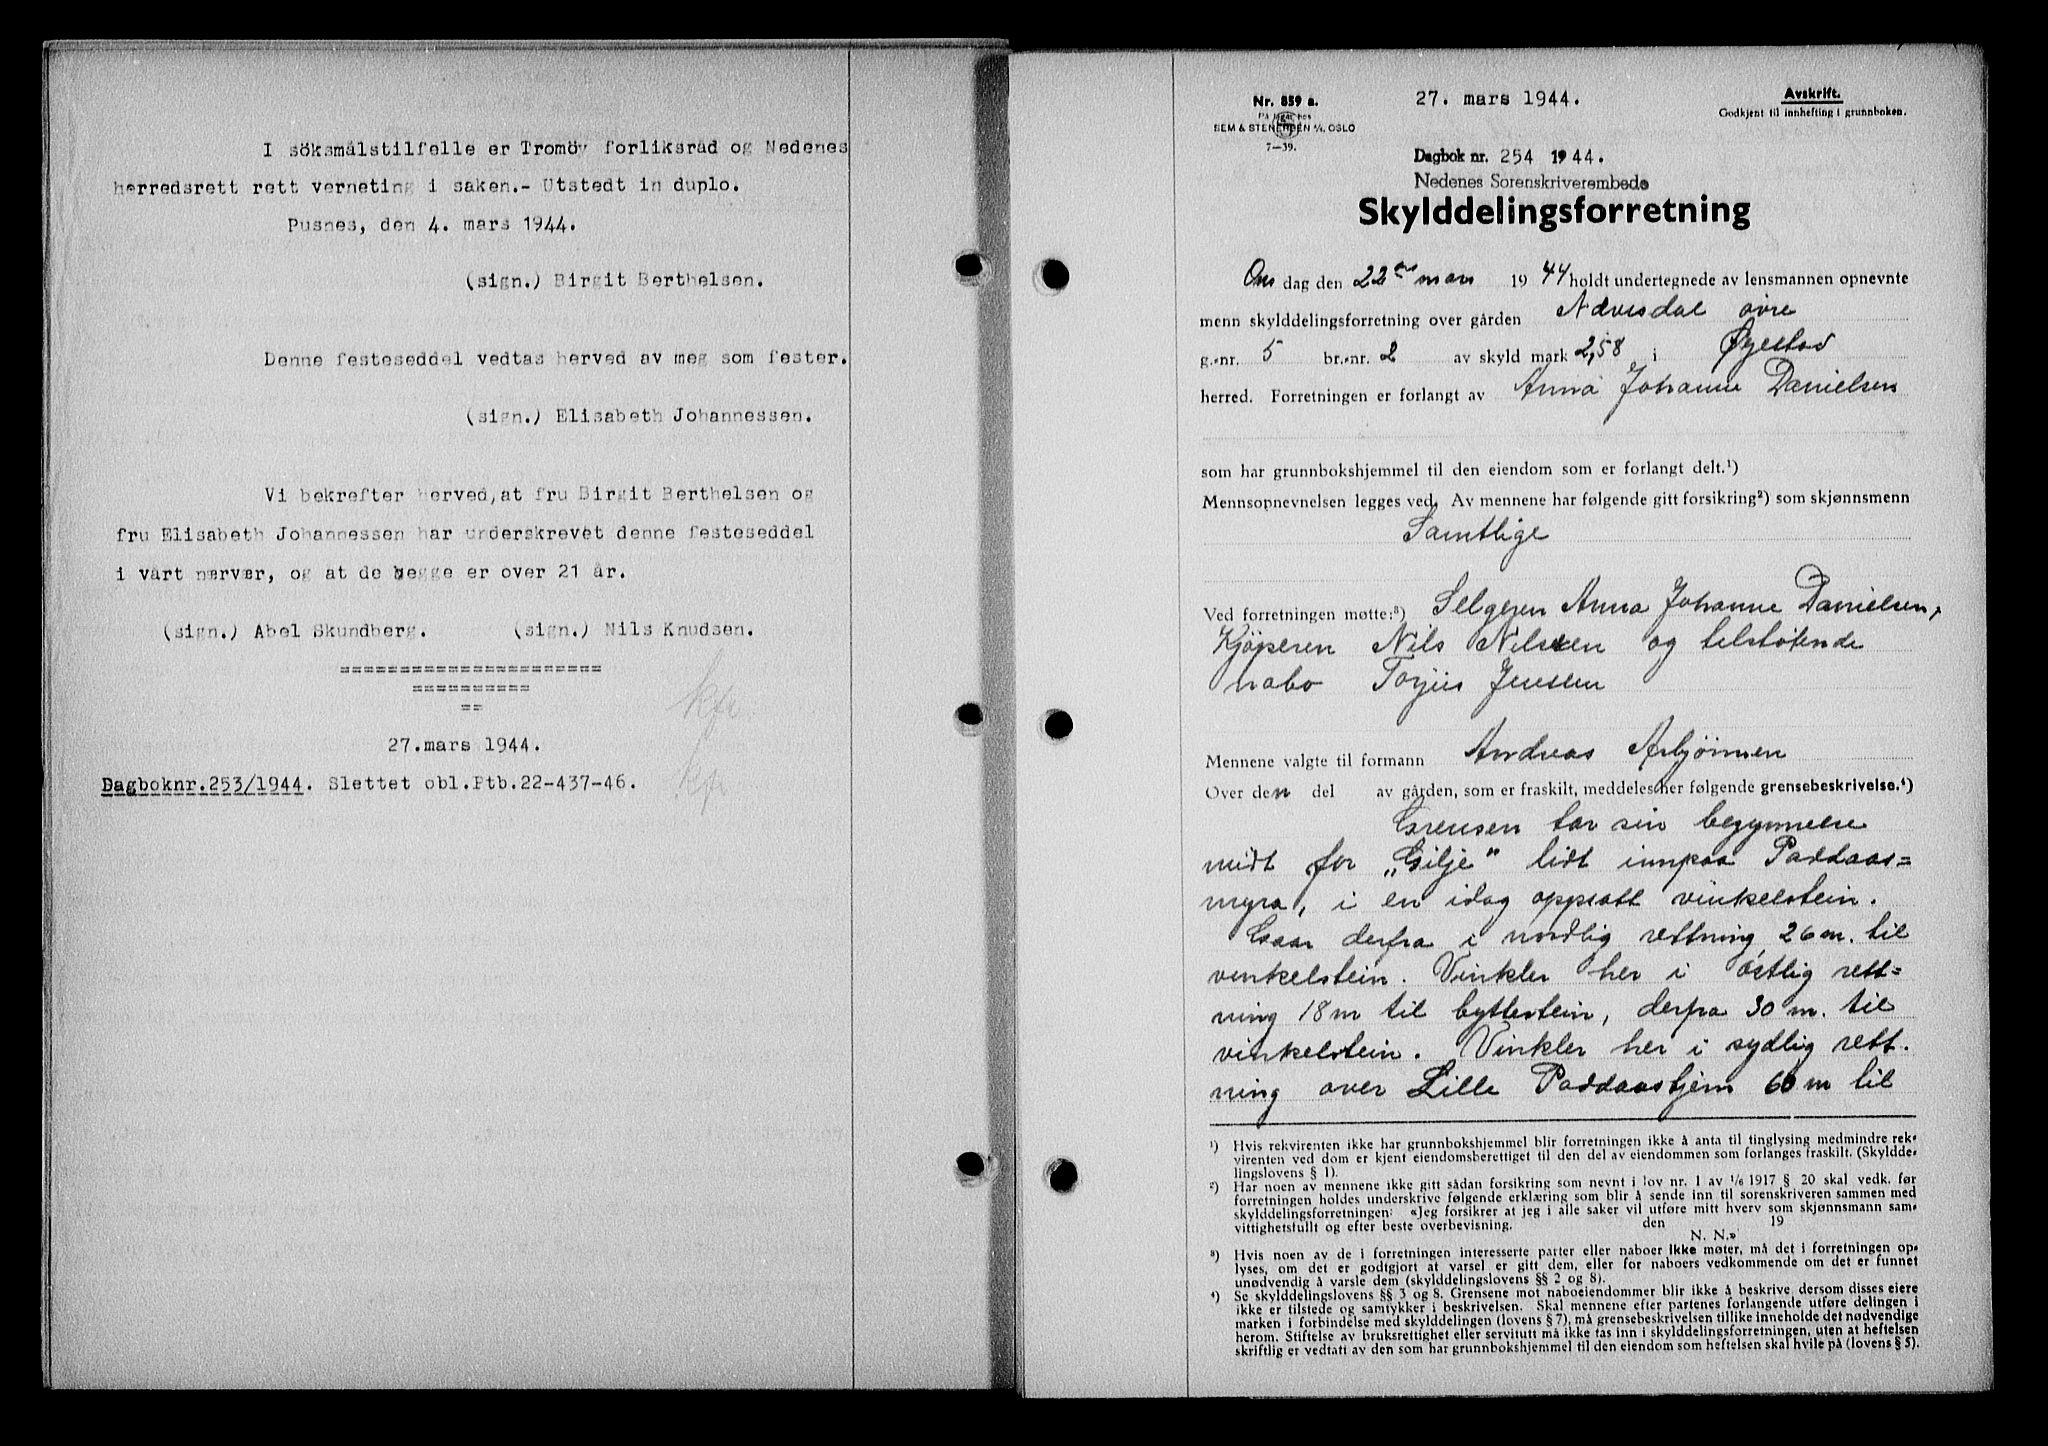 I söksmålstilfelle er Tromöy forliksråd og Nedenes
herredsrett rett verneting i saken.- Utstedt in duplo.
Pusnes, den 4. mars 1944.
(sign.) Birgit Berthelsen.
Denne festeseddel vedtas herved av meg som fester.
(sign.) Elisabeth Johannessen.
Vi bekrefter herved, at fru Birgit Berthelsen og
fru Elisabeth Johannessen har underskrevet denne festeseddel
i vårt nærvær, og at de begge er over 21 år.
(sign.) Abel Skundberg. (sign.) Nils Knudsen.
======================
==========
==
27.mars 1944.
Dagboknr.253/1944. Slettet obl.Ptb.22-437-46.
Nr. 859 a.
På lager hos
SEM & STENERSEN A/S, OSLO
7—39.
27. mars 1944.
Avskrift.
Godkjent til innhefting i grunnboken.
Dagbok nr. 254 1944.
Nedenes Sorenskriverembede
Skylddelingsforretning
Ons dag den 22de mars 1944 holdt undertegnede av lensmannen opnevnte
menn skylddelingsforretning over gården Nævesdal øvre
g.-nr. 5 br.-nr. 2 av skyld mark 2,58 i Øyestad
herred. Forretningen er forlangt av Anna Johanne Danielsen
som har grunnbokshjemmel til den eiendom som er forlangt delt.¹)
Mennsopnevnelsen legges ved. Av mennene har følgende gitt forsikring²) som skjønnsmenn
Samtlige
Ved forretningen møtte:³) Selgeren Anna Johanne Danielsen,
Kjøperen Nils Nilsen og tilstøtende
nabo Torjus Jensen
Mennene valgte til formann Andreas Asbjörnsen
Over den del av gården, som er fraskilt, meddeles her følgende grensebeskrivelse.⁴)
Grensen tar sin begynnelse
midt for „Gilje" lidt innpaa Paddaas=
myra, i en idag oppsatt vinkelstein.
Gaar derfra i nordlig rettning 26 m. til
vinkelstein. Vinkler her i østlig rett=
ning 18 m til byttestein, derfra 30 m. til
vinkelstein. Vinkler her i sydlig rett.
ning over Lille Paddaastjern 60 m til
¹) Hvis rekvirenten ikke har grunnbokshjemmel blir forretningen ikke å anta til tinglysing medmindre rek-
virenten ved dom er kjent eiendomsberettiget til den del av eiendommen som forlanges fraskilt. (Skyldde-
lingslovens § 1).
²) Har noen av mennene ikke gitt sådan forsikring som nevnt i lov nr. 1 av 1/6 1917 § 20 skal vedk. før
forretningen holdes underskrive følgende erklæring som blir å sende inn til sorenskriveren sammen med
skylddelingsforretningen: «Jeg forsikrer at jeg i alle saker vil utføre mitt hverv som skjønnsmann sam-
vittighetsfullt og efter beste overbevisning. den 19
N. N.»
³) Hvis noen av de i forretningen interesserte parter eller naboer ikke møter, må det i forretningen op-
lyses, om det er godtgjort at varsel er gitt dem, eller for naboers vedkommende om det er funnet
unødvendig å varsle dem (skylddelingslovens §§ 2 og 8).
⁴) Se skylddelingslovens §§ 3 og 8. Grensene mot naboeiendommer blir ikke å beskrive dersom disses eiere
ikke er tilstede og samtykker i beskrivelsen. Skal mennene efter partenes forlangende utføre delingen i
marken i forbindelse med skylddelingen (lovens § 7), må grensebeskrivelsen tillike inneholde det nødvendige
herom. Stiftelse av bruksrettighet eller servitutt må ikke tas inn i skylddelingsforretningen, uten at heftelsen
skriftlig er vedtatt av den som har grunnbokshjemmel til den eiendom som heftelsen skal hvile på (lovens § 5).